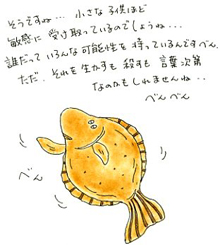 そうですね… 小さな子供ほど
敏感に 受け取っているのでしょうね…
誰だって いろんな可能性を 持っているんですべん。
ただ、それを生かすも 殺すも 言葉次第
なのかもしれませんね…
べんべん
べん